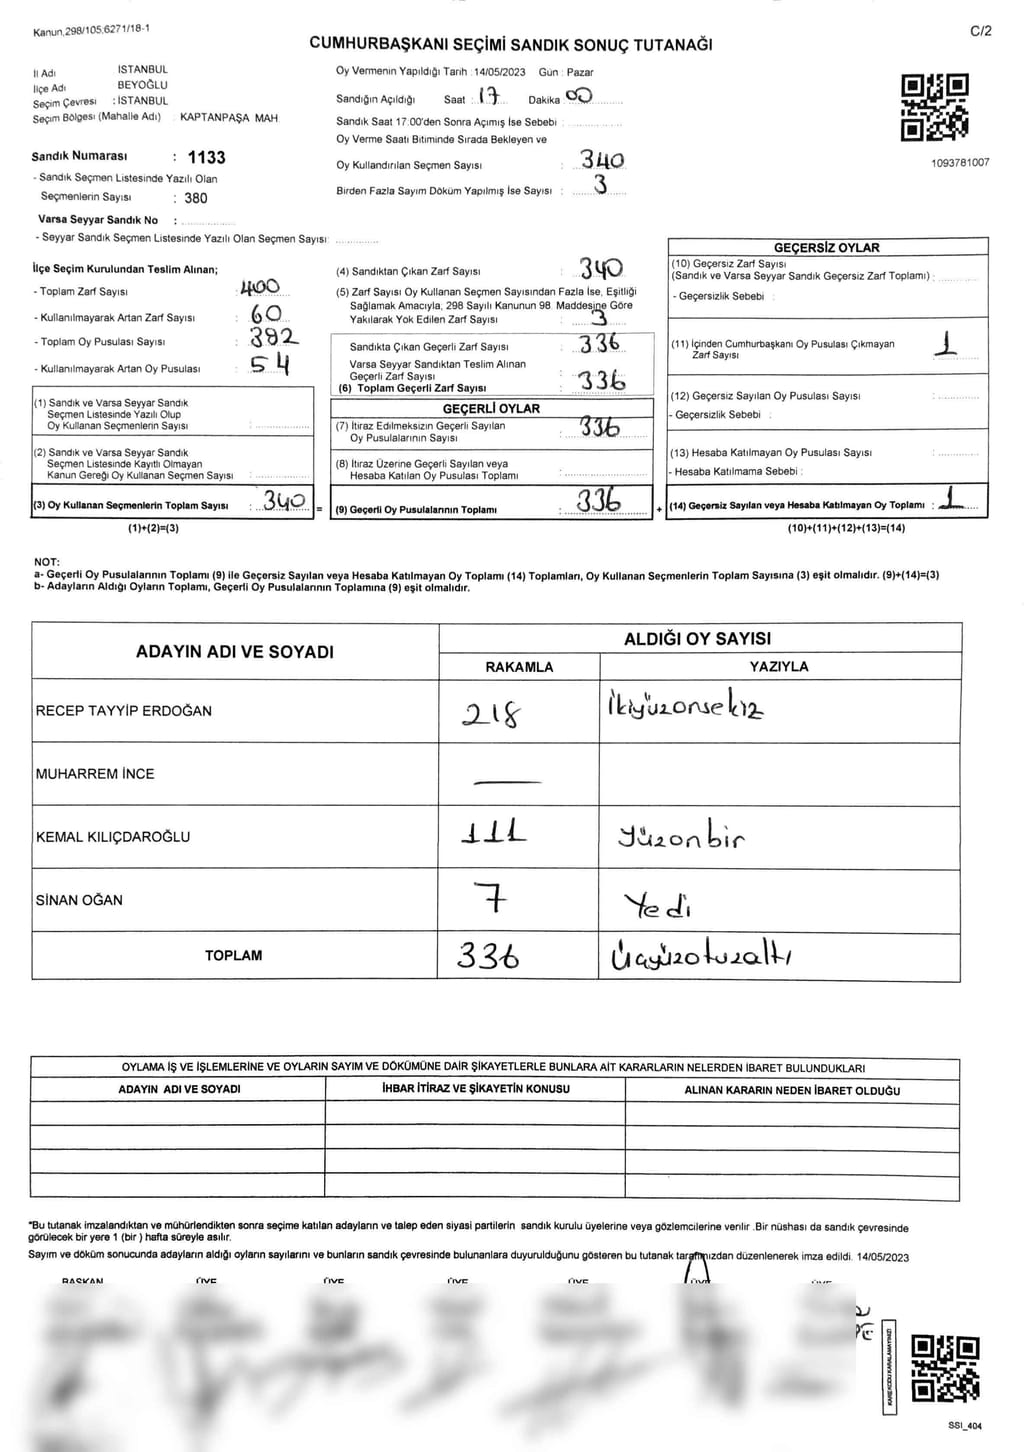 Kanun,298/105;6271/18-1
C/2
CUMHURBAŞKANI SEÇİMİ SANDIK SONUÇ TUTANAĞI
İl Adı İSTANBUL
İlçe Adı BEYOĞLU
Seçim Çevresi : İSTANBUL
Seçim Bölgesi (Mahalle Adı) : KAPTANPAŞA MAH.
Sandık Numarası : 1133
- Sandık Seçmen Listesinde Yazılı Olan
Seçmenlerin Sayısı : 380
Varsa Seyyar Sandık No :
- Seyyar Sandık Seçmen Listesinde Yazılı Olan Seçmen Sayısı:
Oy Vermenin Yapıldığı Tarih : 14/05/2023 Gün : Pazar
Sandığın Açıldığı Saat : 17 Dakika : 00
Sandık Saat 17:00'den Sonra Açımış İse Sebebi :
Oy Verme Saati Bitiminde Sırada Bekleyen ve
Oy Kullandırılan Seçmen Sayısı : 340
Birden Fazla Sayım Döküm Yapılmış İse Sayısı : 3
1093781007
İlçe Seçim Kurulundan Teslim Alınan;
- Toplam Zarf Sayısı : 400
- Kullanılmayarak Artan Zarf Sayısı : 60
- Toplam Oy Pusulası Sayısı : 392
- Kullanılmayarak Artan Oy Pusulası : 54
(1) Sandık ve Varsa Seyyar Sandık
Seçmen Listesinde Yazılı Olup
Oy Kullanan Seçmenlerin Sayısı :
(2) Sandık ve Varsa Seyyar Sandık
Seçmen Listesinde Kayıtlı Olmayan
Kanun Gereği Oy Kullanan Seçmen Sayısı :
(3) Oy Kullanan Seçmenlerin Toplam Sayısı : 340 =
(1)+(2)=(3)
(4) Sandıktan Çıkan Zarf Sayısı : 340
(5) Zarf Sayısı Oy Kullanan Seçmen Sayısından Fazla İse, Eşitliği
Sağlamak Amacıyla, 298 Sayılı Kanunun 98. Maddesine Göre
Yakılarak Yok Edilen Zarf Sayısı : 3
Sandıkta Çıkan Geçerli Zarf Sayısı : 336
Varsa Seyyar Sandıktan Teslim Alınan
Geçerli Zarf Sayısı :
(6) Toplam Geçerli Zarf Sayısı : 336
GEÇERLİ OYLAR
(7) İtiraz Edilmeksizin Geçerli Sayılan
Oy Pusulalarının Sayısı : 336
(8) İtiraz Üzerine Geçerli Sayılan veya
Hesaba Katılan Oy Pusulası Toplamı :
(9) Geçerli Oy Pusulalarının Toplamı : 336 +
GEÇERSİZ OYLAR
(10) Geçersiz Zarf Sayısı
(Sandık ve Varsa Seyyar Sandık Geçersiz Zarf Toplamı) :
- Geçersizlik Sebebi :
(11) İçinden Cumhurbaşkanı Oy Pusulası Çıkmayan
Zarf Sayısı : 1
(12) Geçersiz Sayılan Oy Pusulası Sayısı :
- Geçersizlik Sebebi :
(13) Hesaba Katılmayan Oy Pusulası Sayısı :
- Hesaba Katılmama Sebebi :
(14) Geçersiz Sayılan veya Hesaba Katılmayan Oy Toplamı : 1
(10)+(11)+(12)+(13)=(14)
NOT:
a- Geçerli Oy Pusulalarının Toplamı (9) ile Geçersiz Sayılan veya Hesaba Katılmayan Oy Toplamı (14) Toplamları, Oy Kullanan Seçmenlerin Toplam Sayısına (3) eşit olmalıdır. (9)+(14)=(3)
b- Adayların Aldığı Oyların Toplamı, Geçerli Oy Pusulalarının Toplamına (9) eşit olmalıdır.
ADAYIN ADI VE SOYADI
ALDIĞI OY SAYISI
RAKAMLA YAZIYLA
RECEP TAYYİP ERDOĞAN 218 İkiyüzonsekiz
MUHARREM İNCE —
KEMAL KILIÇDAROĞLU 111 Yüzonbir
SİNAN OĞAN 7 Yedi
TOPLAM 336 Üçyüzotuzaltı
OYLAMA İŞ VE İŞLEMLERİNE VE OYLARIN SAYIM VE DÖKÜMÜNE DAİR ŞİKAYETLERLE BUNLARA AİT KARARLARIN NELERDEN İBARET BULUNDUKLARI
ADAYIN ADI VE SOYADI İHBAR İTİRAZ VE ŞİKAYETİN KONUSU ALINAN KARARIN NEDEN İBARET OLDUĞU
*Bu tutanak imzalandıktan ve mühürlendikten sonra seçime katılan adayların ve talep eden siyasi partilerin sandık kurulu üyelerine veya gözlemcilerine verilir .Bir nüshası da sandık çevresinde
görülecek bir yere 1 (bir ) hafta süreyle asılır.
Sayım ve döküm sonucunda adayların aldığı oyların sayılarını ve bunların sandık çevresinde bulunanlara duyurulduğunu gösteren bu tutanak tarafımızdan düzenlenerek imza edildi. 14/05/2023
BAŞKAN ÜYE ÜYE ÜYE ÜYE ÜYE ÜYE
KAREKODU KARALAMAYINIZ!
SSI_404